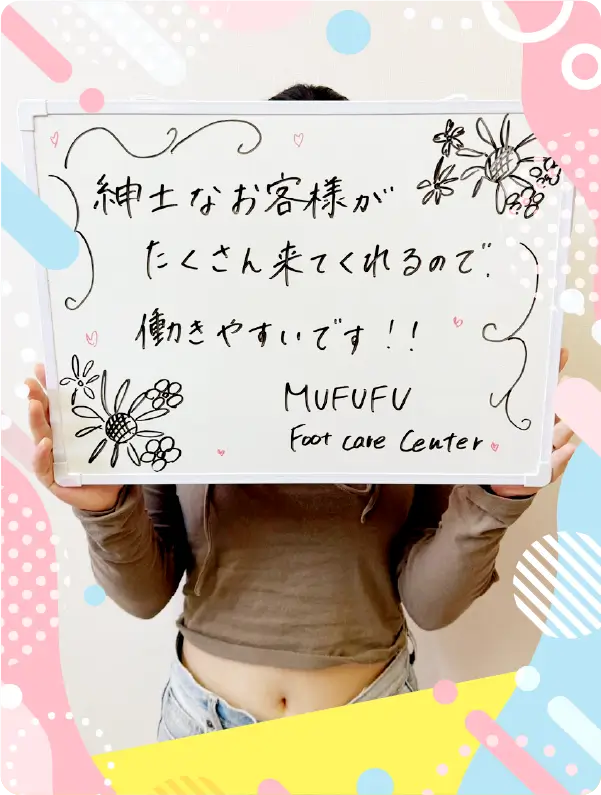 紳士なお客様が
たくさん来てくれるので、
働きやすいです!!
MUFUFU
Foot care Center